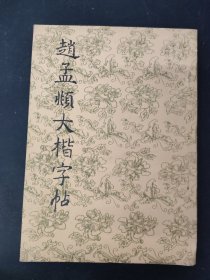 趙孟頫大楷字帖